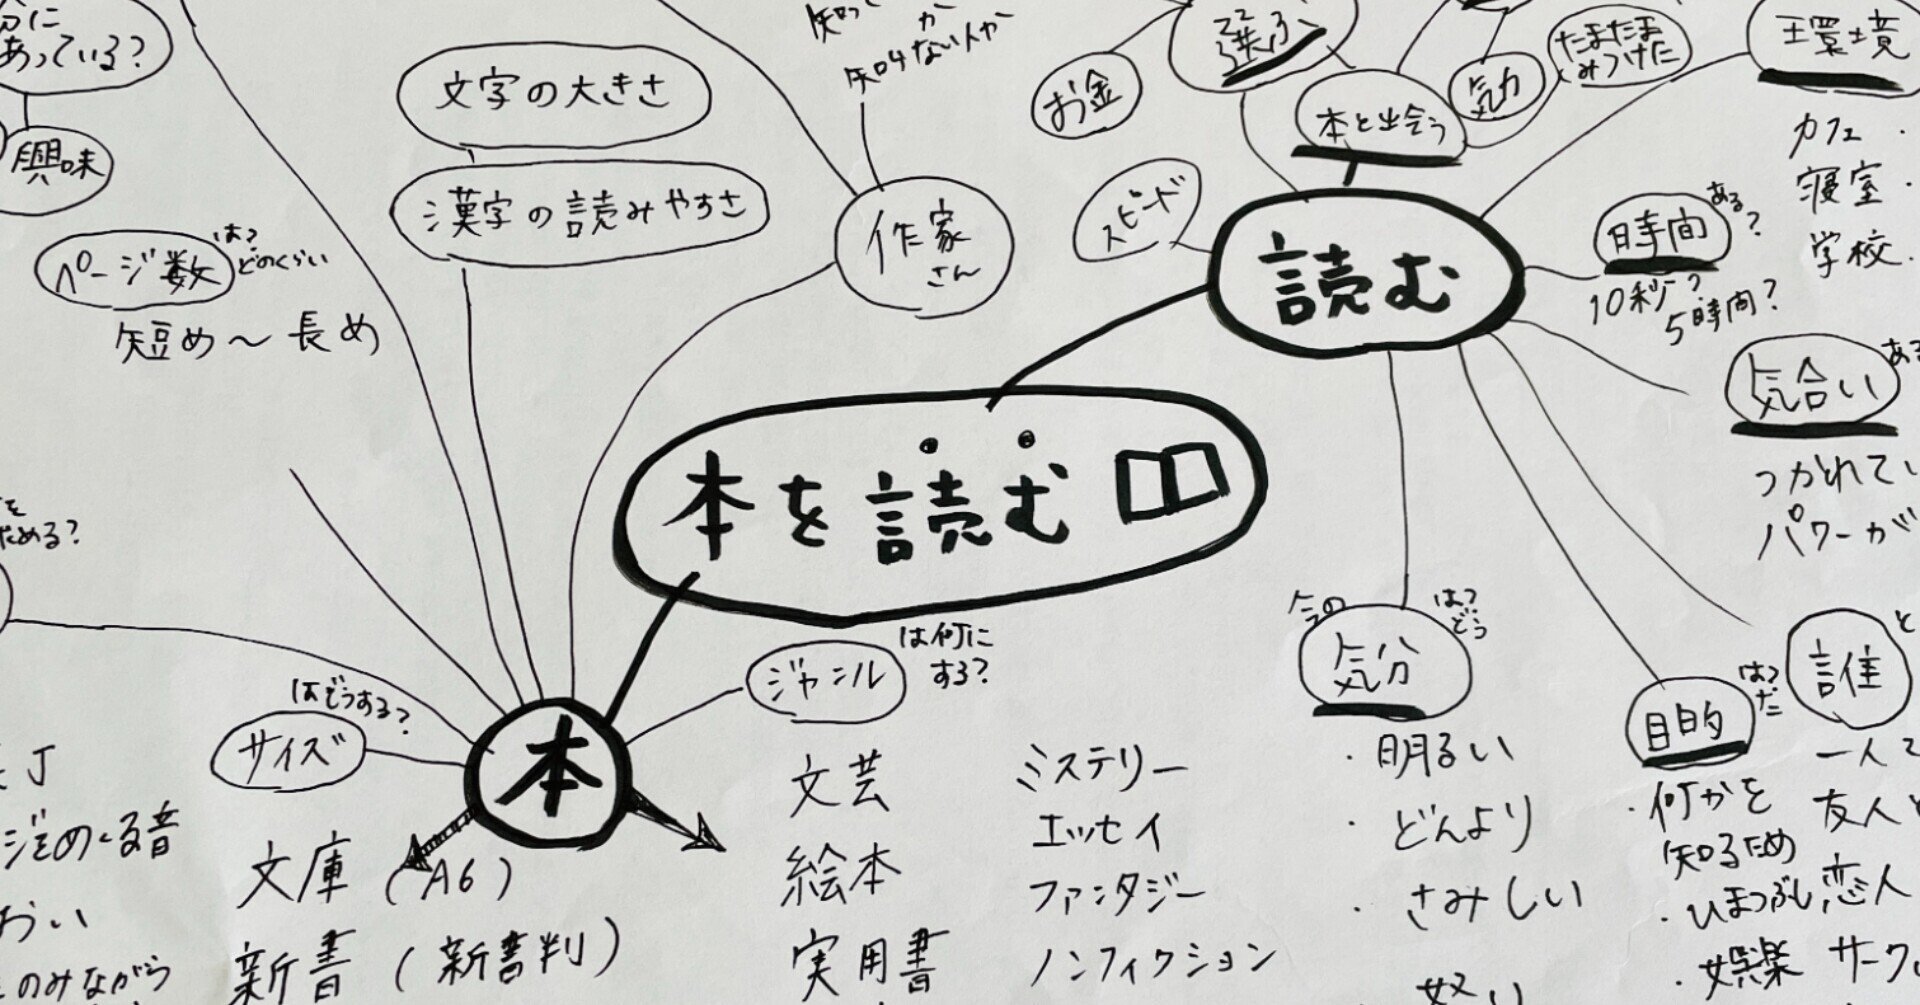 あっている?
興味
ページ数
は?
どのくらい
短め〜長め
文字の大きさ
漢字の読みやすさ
知らない人か
作家
さん
お金
選ぶ
本と出会う
気力
たまたま
みつけた
環境
カフェ
寝室
学校
スピード
読む
時間
ある?
10秒?
5時間?
気合い
ある
つかれてい
パワーが
本を読む
ジャンル
は何に
する?
文芸
絵本
実用書
ミステリー
エッセイ
ファンタジー
ノンフィクション
本
サイズ
はどうする?
文庫(A6)
新書(新書判)
今の
気分
は?
どう
・明るい
・どんより
・さみしい
目的
は?
・何かを
知るため
・ひまつぶし
・娯楽
誰
と
一人で
友人と
恋人
サークル
ためる?
おい
のみながら